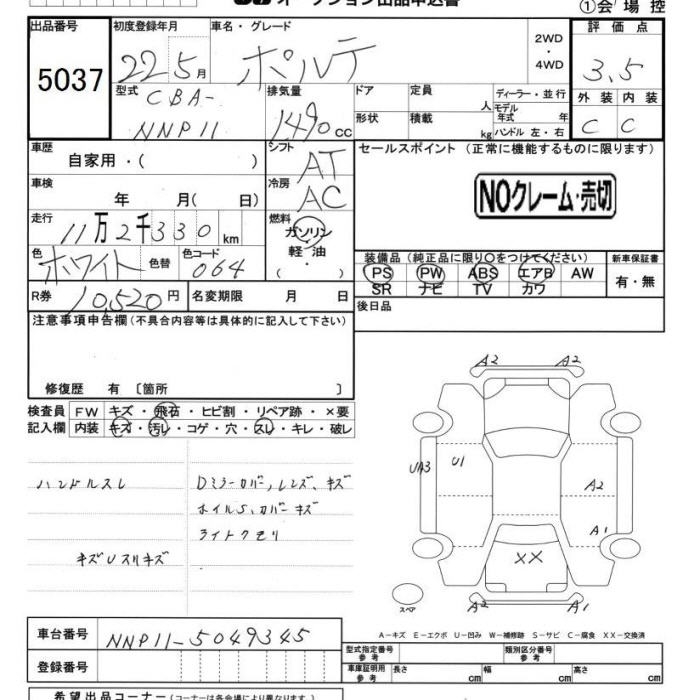 オークション出品申込書
①会場控
出品番号
5037
初度登録年月
22 5月
車名・グレード
ポルテ
2WD
・
4WD
評価点
3.5
型式
CBA-
NNP11
排気量
1490 CC
ドア
定員
人
ディーラー・並行
モデル
年式 年
形状
積載
kg
ハンドル 左・右
外装
内装
C
C
車歴
自家用・( )
シフト
AT
セールスポイント (正常に機能するものに限ります)
NOクレーム・売切
車検
年 月( 日)
冷房
AC
走行
11万2千330km
燃料
ガソリン
・
軽・油
色
ホワイト
色替
色コード
064
装備品 (純正品に限り○をつけてください)
新車保証書
PS PW ABS エアB AW
SR ナビ TV カワ
有・無
R券
10,520円
名変期限 月 日
後日品
注意事項申告欄(不具合内容等は具体的に記入して下さい)
修復歴 有 〔箇所 〕
検査員
記入欄
FW キズ・飛石・ヒビ割・リペア跡・×要
内装 キズ・汚レ・コゲ・穴・スレ・キレ・破レ
ハンドルスレ
Dミラーカバー,レンズ、キズ
ホイルS、カバーキズ
ライトクモリ
キズUスリキズ
A2 A2
UA3 U1
A2
A1
XX
スペア
A2 A1
A-キズ E-エクボ U-凹み W-補修跡 S-サビ C-腐食 XX-交換済
車台番号
NNP11-5049345
登録番号
型式指定番号
参考
類別区分番号
参考
車庫証明用
参考
長さ cm
幅 cm
高さ cm
希望出品コーナー(コーナーは各会場により異なります)